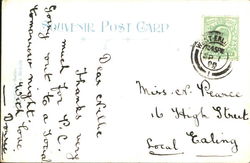 SOUVENIR POST CARD
Dear Nellie
Thanks very
much for P.C.
Going out to Local
tomorrow night.
With love
Miss N. Pearce
16 High Street
Local Ealing